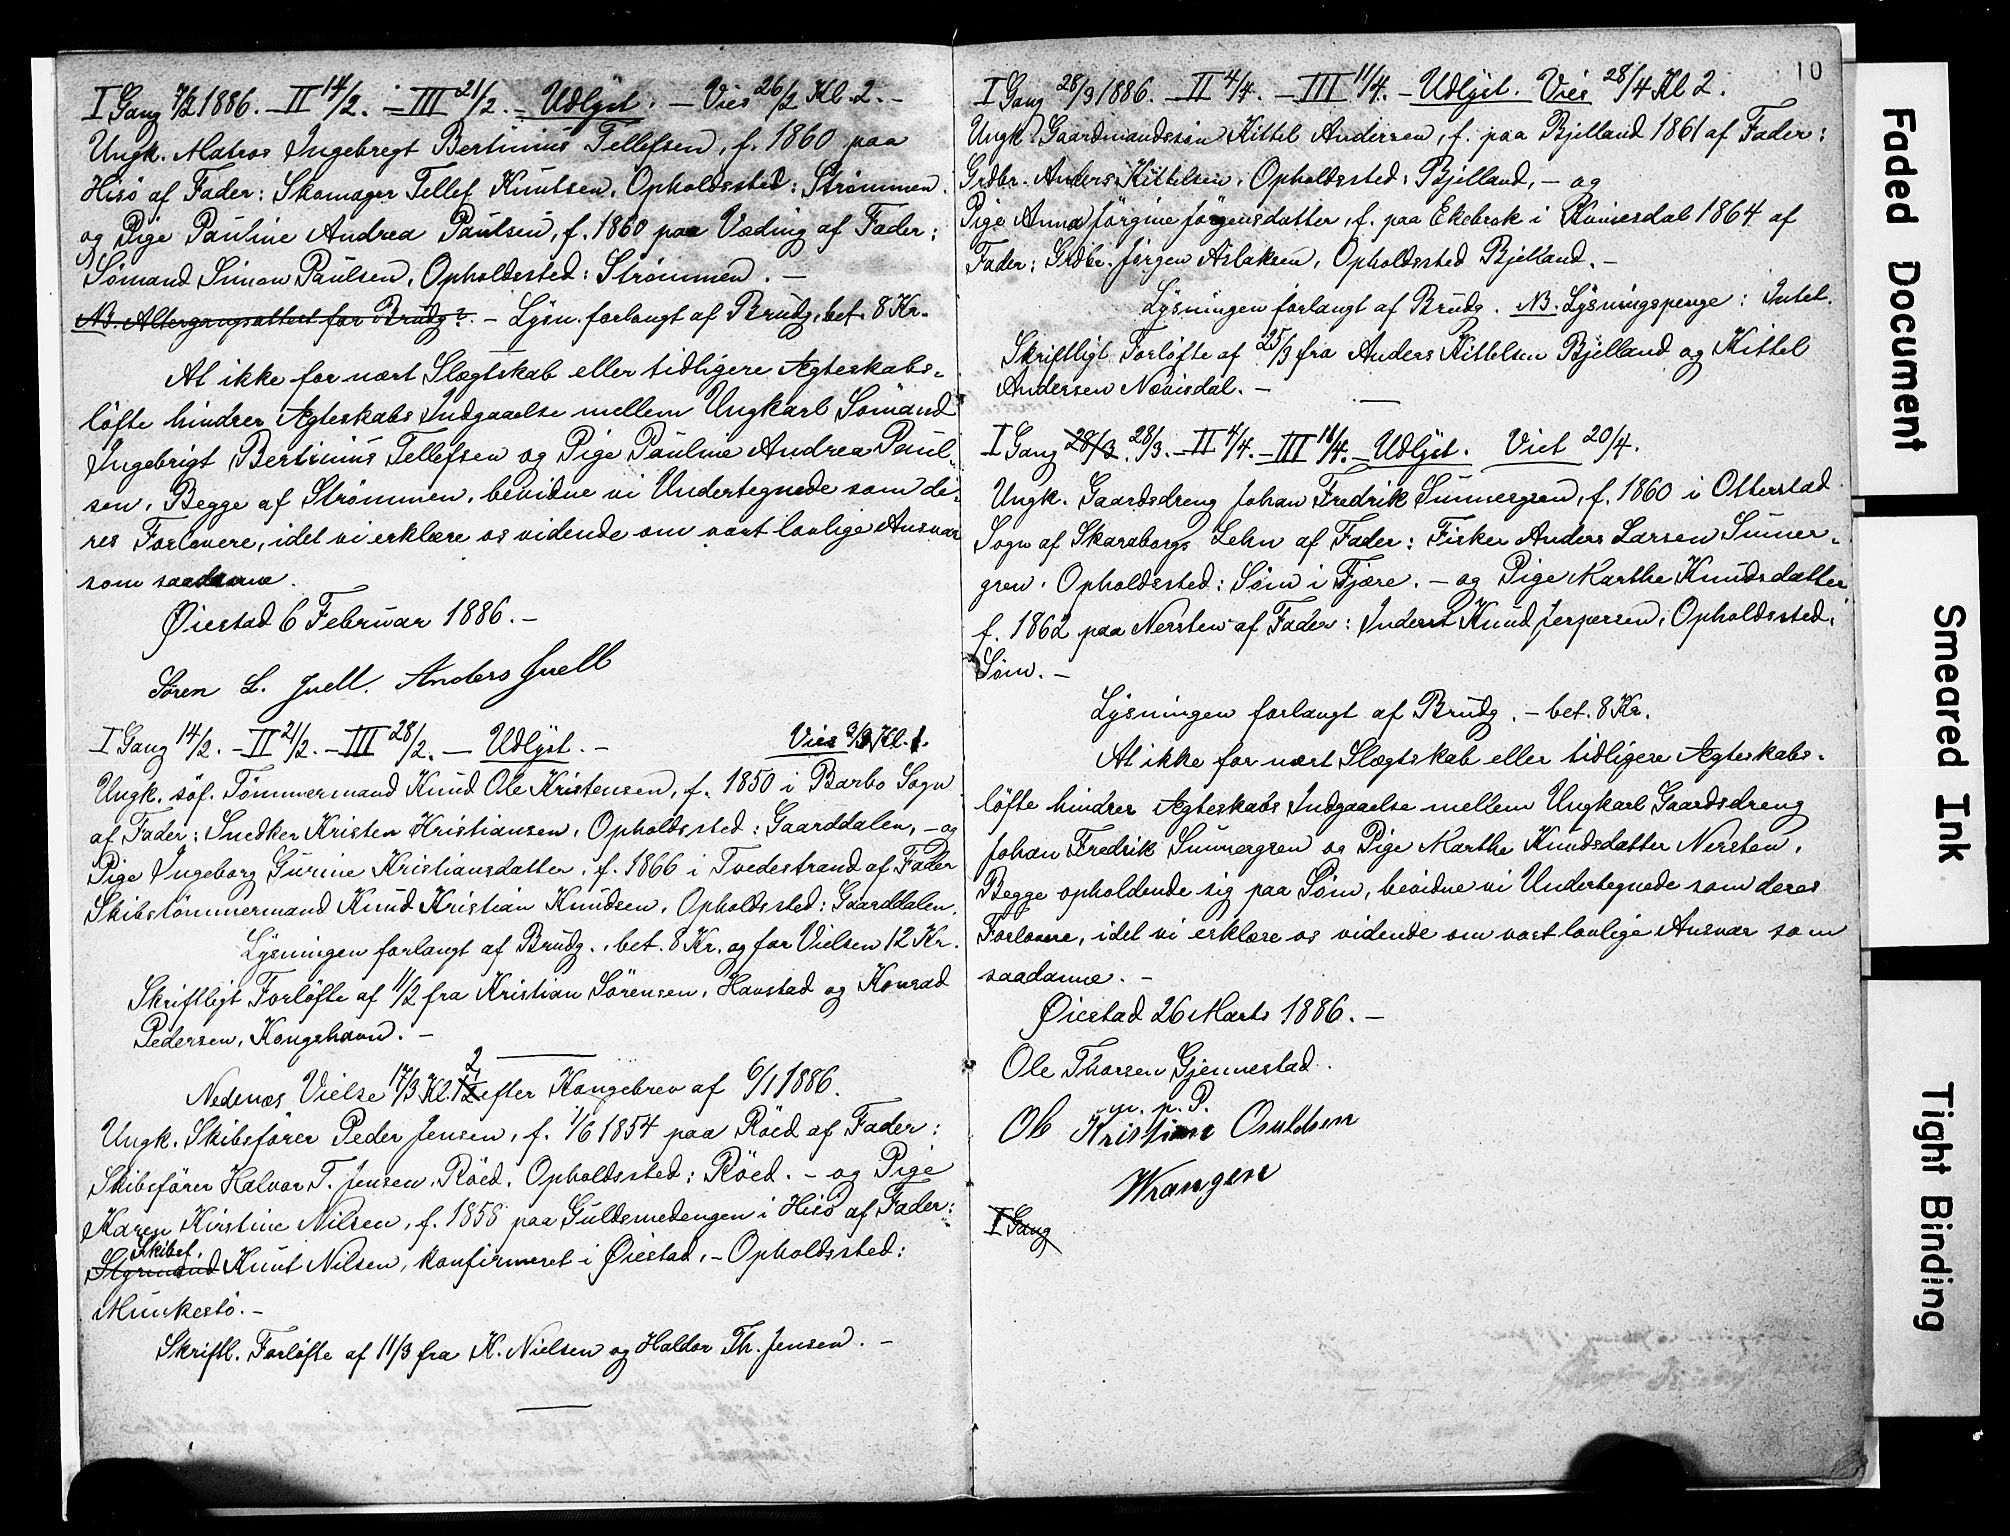 I Gang 7/2 1886. – II 14/2. – III 21/2. – Udlyst. – Vies 26/2 Kl. 2. –
Ungk. Matros Ingebregt Bertinius Tellefsen, f. 1860 paa
Hisö af Fader: Skomager Tellef Knutsen, Opholdssted: Strømmen.
og Pige Pauline Andrea Paulsen, f. 1860 paa Væding af Fader:
Sömand Simon Paulsen, Opholdssted: Strømmen. –
NB. Altergangsattest for Brudg? – Lysn. forlangt af Brudg. bet. 8 Kr.
At ikke for nært Slægtskab eller tidligere Ægteskabs-
löfte hindrer Ægteskabs Indgaaelse mellem Ungkarl Sömand
Ingebrigt Bertinius Tellefsen og Pige Pauline Andrea Paul-
sen, Begge af Strømmen, bevidne vi Undertegnede som de-
res Forlovere, idet vi erklære os vidende om vort lovlige Ansvar
som saadanne.
Øiestad 6 Februar 1886. –
Søren L. Juell. Anders Juell
I Gang 14/2. – II 21/2. – III 28/2. – Udlyst. – Vies 3/3 Kl. 1.
Ungk. söf. Tömmermand Knud Ole Kristensen, f. 1850 i Barbo Sogn
af Fader: Snedker Kristen Kristiansen, Opholdssted: Gaarddalen, – og
Pige Ingeborg Gurine Kristiansdatter, f. 1866 i Tvedestrand af Fader
Skibstömmermand Knud Kristian Knudsen, Opholdssted: Gaarddalen.
Lysningen forlangt af Brudg., bet. 8 Kr. og for Vielsen 12 Kr.
Skriftligt Forløfte af 11/2 fra Kristian Sörensen, Havstad og Konrad
Pedersen, Kongshavn. –
Nedenæs Vielse 17/3 Kl. 12 2 efter Kongebrev af 6/1 1886.
Ungk. Skibsfører Peder Jensen, f. 1/6 1854 paa Röed af Fader:
Skibsfører Halvor T. Jensen, Röed. Opholdssted: Röed. – og Pige
Karen Kirstine Nilsen, f. 1858 paa Guldsmedengen i Hisö af Fader:
Skibsf.
Styrmand Knut Nilsen, konfirmeret i Øiestad. – Opholdssted:
Munkestö. –
Skriftl. Forløfte af 11/3 fra K. Nielsen og Haldor Th. Jensen. –
10
I Gang 28/3 1886. – II 4/4. – III 11/4. – Udlyst. Vies 28/4 Kl 2.
Ungk. Gaardmandssön Kittel Andersen, f. paa Bjelland 1861 af Fader:
Grdbr. Anders Kittelsen, Opholdssted: Bjelland, – og
Pige Anna Jörgine Jörgensdatter, f. paa Ekebrok i Kvinesdal 1864 af
Fader: Grdbr. Jörgen Aslaksen, Opholdssted Bjelland. –
Lysningen forlangt af Brudg. NB. Lysningspenge: Intet.
Skriftligt Forløfte af 25/3 fra Anders Kittelsen Bjelland og Kittel
Andersen Nævisdal. –
I Gang 28/3. 28/3. – II 4/4. – III 11/4. – Udlyst. Viet 20/4.
Ungk. Gaardsdreng Johan Fredrik Sunnergren, f. 1860 i Otterstad
Sogn af Skaraborgs Lehn af Fader: Fisker Anders Larsen Sunner-
gren. Opholdssted: Söm i Fjære. – og Pige Marthe Knudsdatter,
f. 1862 paa Nersten af Fader: Inderst Knud Jespersen, Opholdssted:
Söm. –
Lysningen forlangt af Brudg. – bet. 8 Kr.
At ikke for nært Slægtskab eller tidligere Ægteskabs-
löfte hindrer Ægteskabs Indgaaelse mellem Ungkarl Gaardsdreng
Johan Fredrik Sunnergren og Pige Marthe Knudsdatter Nersten,
Begge opholdende sig paa Söm, bevidne vi Undertegnede som deres
Forlovere, idet vi erklære os vidende om vort lovlige Ansvar som
saadanne. –
Øiestad 26 Marts 1886. –
Ole Thorsen Gjennestad.
m. p. P.
Ole Kristian Osuldsen
Wrangen
I Gang
Faded Document
Smeared Ink
Tight Binding